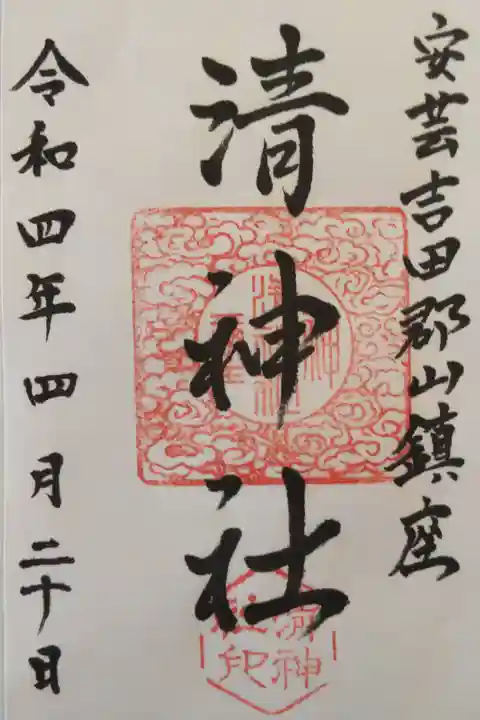 安芸吉田郡山鎮座
清神社
令和四年四月二十日
清神
社印